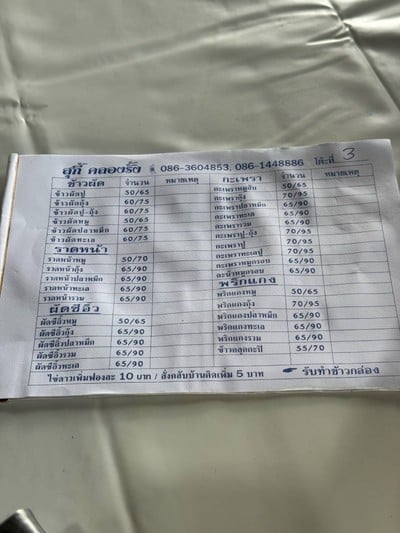 สุกี้ คลองรั้ง 086-3604853, 086-1448886 โต๊ะที่ 3
ข้าวผัด จำนวน หมายเหตุ
ข้าวผัดปู 50/65
ข้าวผัดกุ้ง 60/75
ข้าวผัดปู-กุ้ง 60/75
ข้าวผัดหมู 50/65
ข้าวผัดปลาหมึก 60/75
ข้าวผัดทะเล 60/75
ราดหน้า
ราดหน้าหมู 50/70
ราดหน้ากุ้ง 65/90
ราดหน้าปลาหมึก 65/90
ราดหน้าทะเล 65/90
ราดหน้ารวม 65/90
ผัดซีอิ๊ว
ผัดซีอิ๊วหมู 50/65
ผัดซีอิ๊วกุ้ง 65/90
ผัดซีอิ๊วปลาหมึก 65/90
ผัดซีอิ๊วรวม 65/90
ผัดซีอิ๊วทะเล 65/90
กะเพรา จำนวน หมายเหตุ
กะเพราหมูสับ 50/65
กะเพรากุ้ง 70/95
กะเพราปลาหมึก 65/90
กะเพราทะเล 65/90
กะเพรารวม 65/90
กะเพราปู-กุ้ง 70/95
กะเพราปู 70/95
กะเพราทะเลปู 70/95
กะเพราหมูกรอบ 65/90
คะน้าหมูกรอบ 65/90
พริกแกง
พริกแกงหมู 50/65
พริกแกงกุ้ง 70/95
พริกแกงปลาหมึก 65/90
พริกแกงทะเล 65/90
พริกแกงรวม 65/90
ข้าวคลุกกะปิ 55/70
ไข่ดาวเพิ่มฟองละ 10 บาท / สั่งกลับบ้านคิดเพิ่ม 5 บาท รับทำข้าวกล่อง